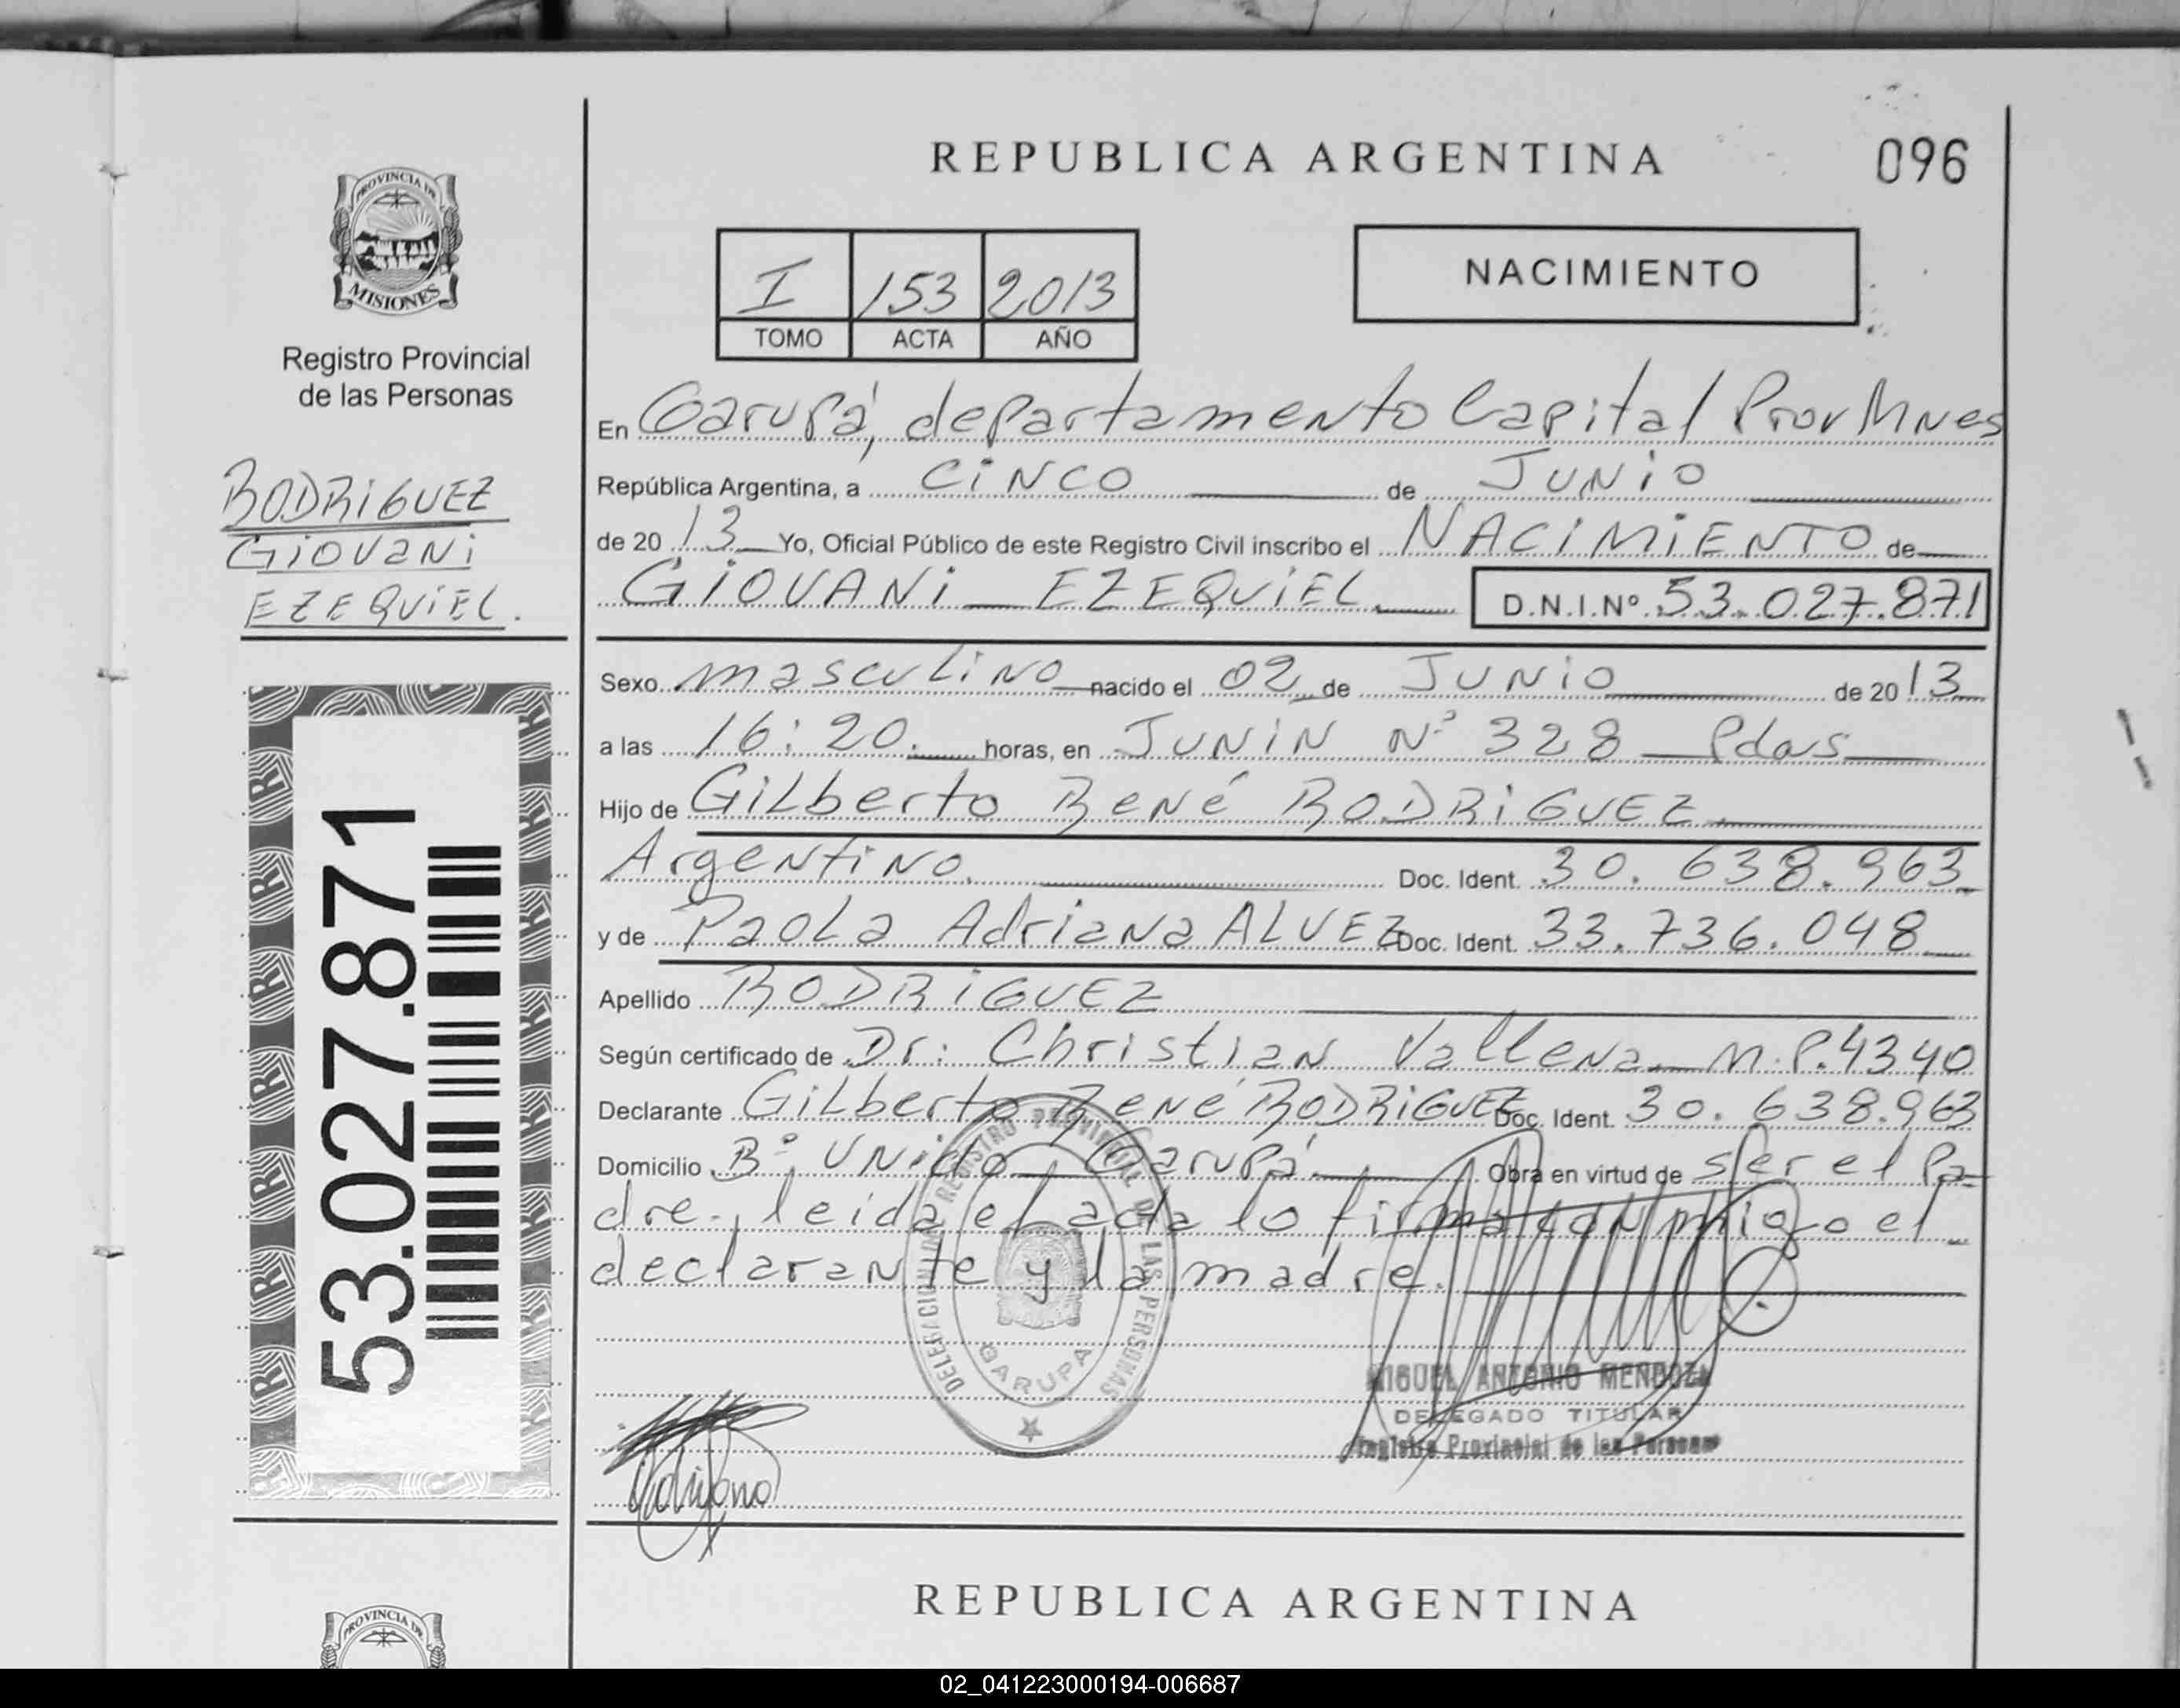 REPUBLICA ARGENTINA
096
PROVINCIA DE
MISIONES
Registro Provincial
de las Personas
RODRIGUEZ
GIOVANI
EZEQUIEL.
53.027.871
I 153 2013
TOMO ACTA AÑO
NACIMIENTO
En Garupá, departamento Capital Prov Mnes
República Argentina, a CINCO de JUNIO
de 20 13 Yo, Oficial Público de este Registro Civil inscribo el NACIMIENTO de
GIOVANI EZEQUIEL D.N.I.Nº 53.027.871
Sexo masculino nacido el 02 de JUNIO de 20 13
a las 16:20. horas, en JUNIN Nº 328 Pdas
Hijo de Gilberto René RODRIGUEZ
Argentino. Doc. Ident. 30.638.963
y de Paola Adriana ALVEZ Doc. Ident. 33.736.048
Apellido RODRIGUEZ
Según certificado de Dr: Christian Vallena M.P.4340
Declarante Gilberto René RODRIGUEZ Doc. Ident. 30.638.963
Domicilio Bº Unido Garupá. Obra en virtud de ser el Pa=
dre., leida el acta lo firma con migo el
declarante y la madre.
DELEGACION REGISTRO PROVINCIAL DE LAS PERSONAS
GARUPA
MIGUEL ANTONIO MENDOZA
DELEGADO TITULAR
Registro Provincial de las Personas
REPUBLICA ARGENTINA
PROVINCIA DE
02_041223000194-006687